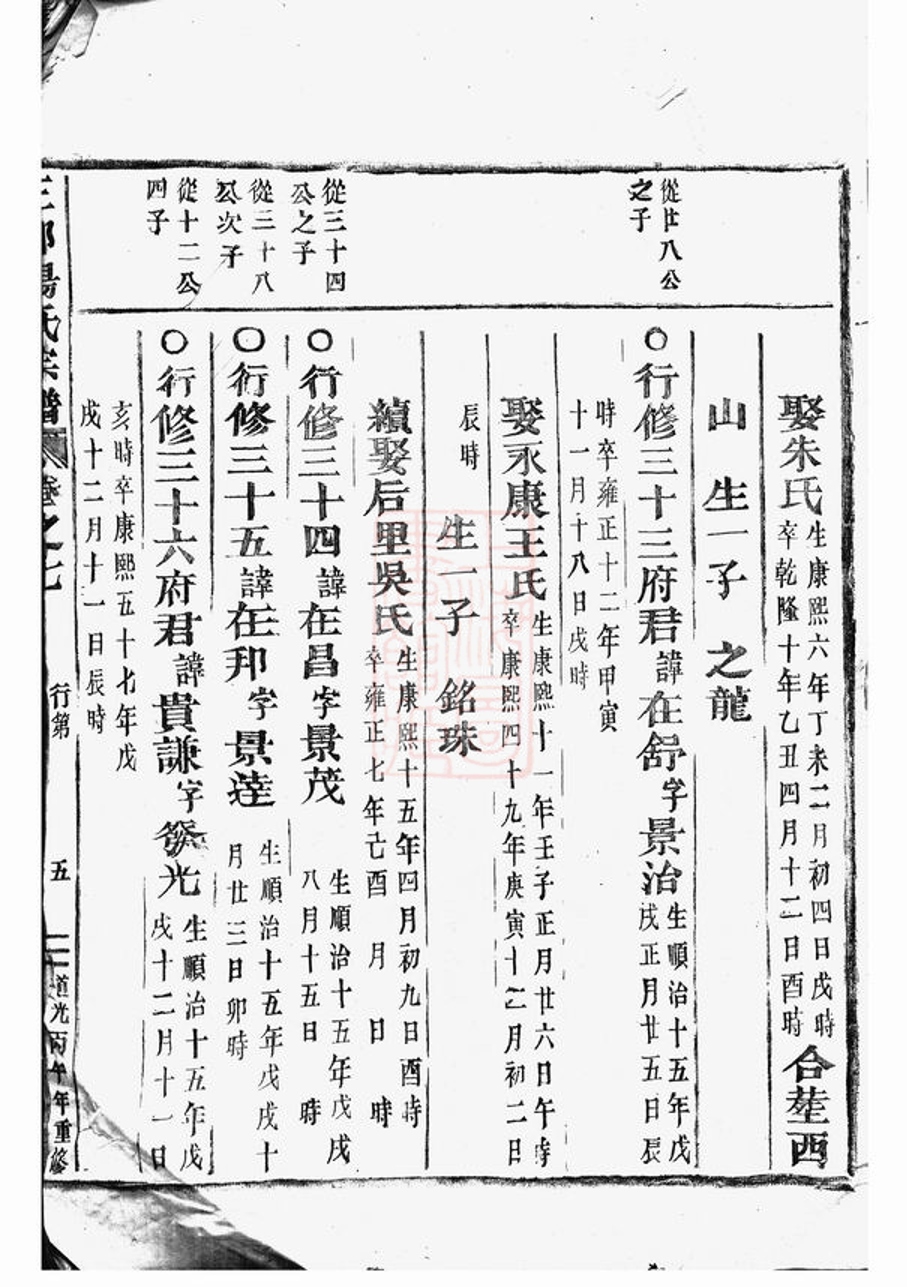 從廿八公
之子
從三十四
公之子
從三十八
公次子
從十二公
四子
娶朱氏
生康熙六年丁未二月初四日戌時
卒乾隆十年乙丑四月十二日酉時
合塟西
山 生一子 之龍
○行修三十三府君諱在舒字景治
生順治十五年戊
戌正月廿五日辰
時卒雍正十二年甲寅
十一月十八日戌時
娶永康王氏
生康熙十一年壬子正月廿六日午時
卒康熙四十九年庚寅十二月初二日
辰時
生一子 銘珠
續娶后里吳氏
生康熙十五年四月初九日酉時
卒雍正七年己酉 月 日 時
○行修三十四諱在昌字景茂
生順治十五年戊戌
八月十五日 時
○行修三十五諱在邦字景逵
生順治十五年戊戌十
月廿三日卯時
○行修三十六府君諱貴謙字發光
生順治十五年戊
戌十二月十一日
亥時卒康熙五十七年戊
戌十二月十一日辰時
楊氏宗譜 卷之七 行第 五 道光丙午年重修